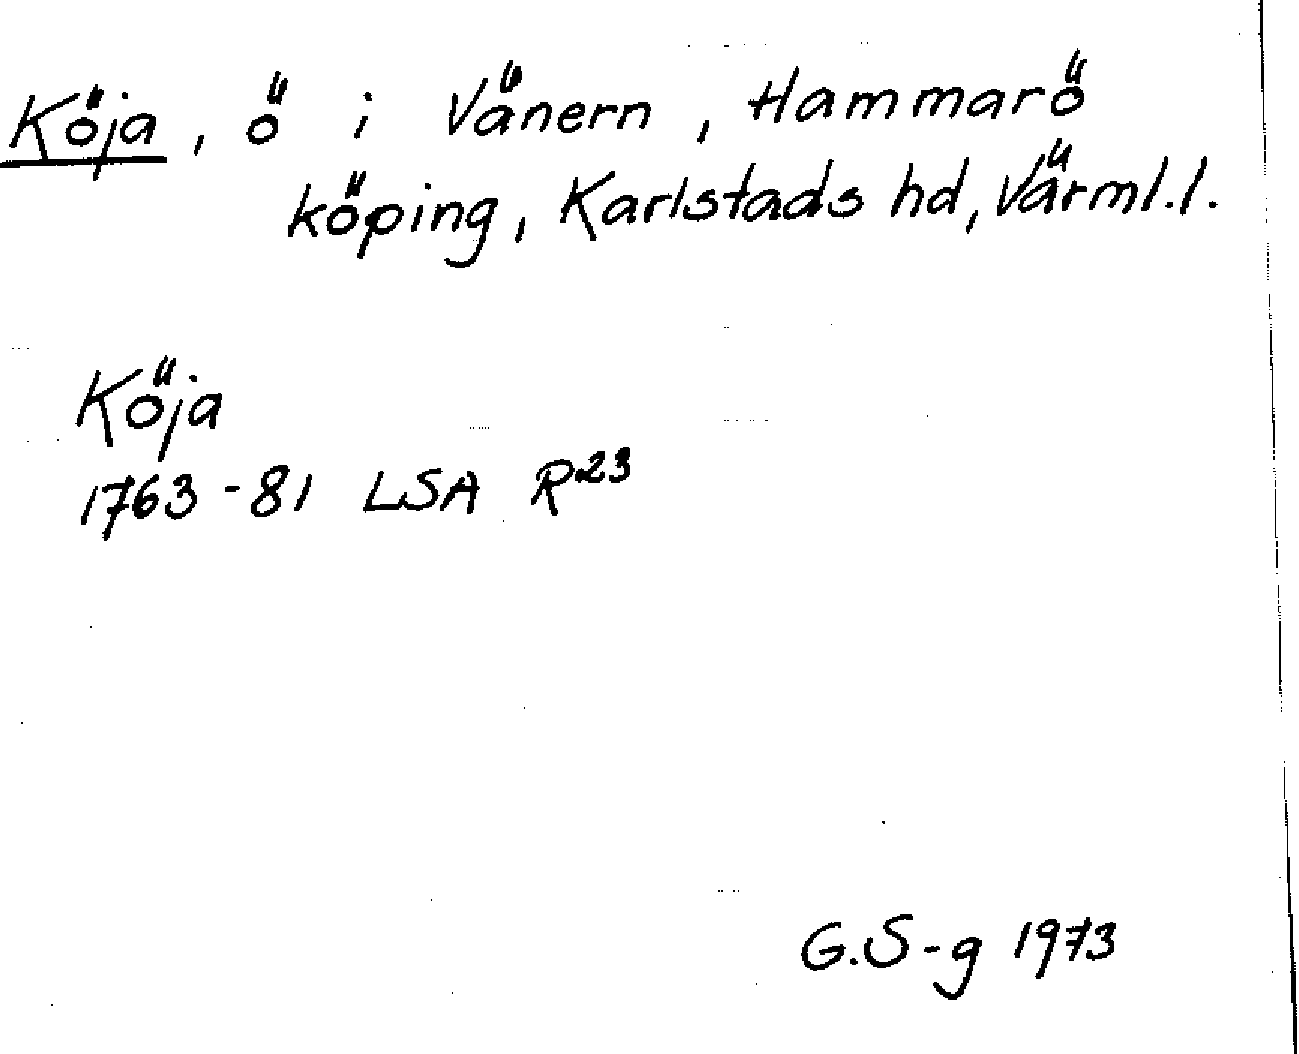 Köja, ö i Vänern, Hammarö
köping, Karlstads hd, Värml.l.
Köja
1763-81 LSA R23
G.S-g 1973